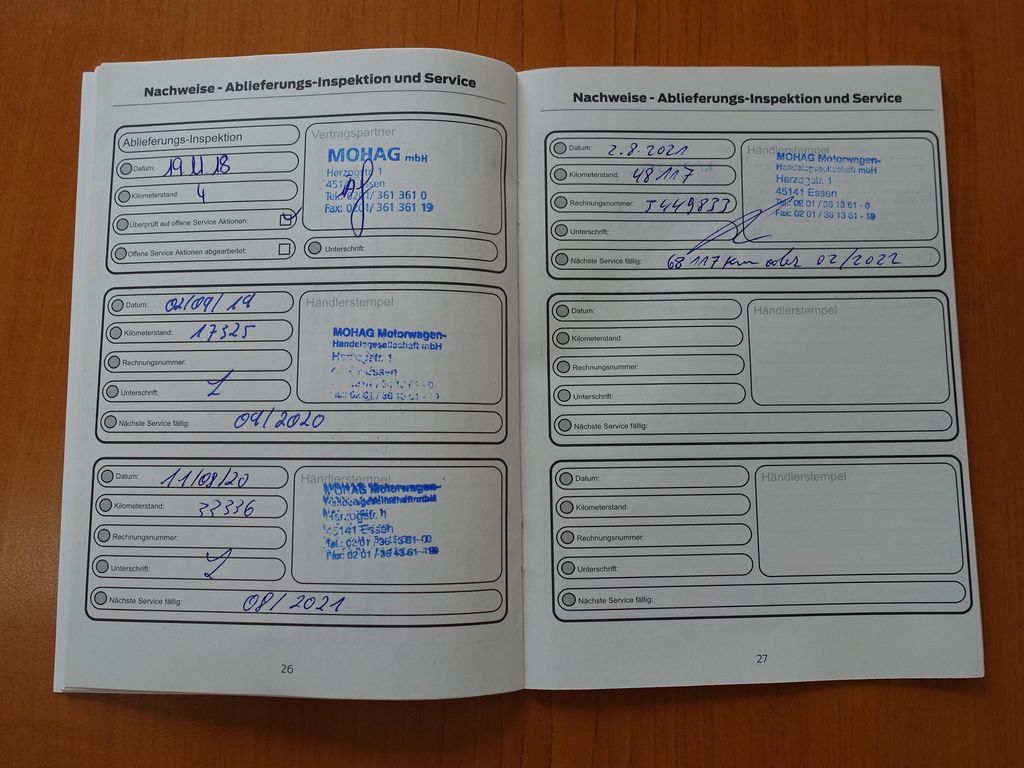 Nachweise - Ablieferungs-Inspektion und Service
Ablieferungs-Inspektion
Datum: 19.11.18
Kilometerstand: 4
Überprüft auf offene Service Aktionen:
Offene Service Aktionen abgearbeitet:
Vertragspartner
MOHAG mbH
Herzogstr. 1
45141 Essen
Tel.: 0201/ 361 361 0
Fax: 0201/ 361 361 19
Unterschrift:
Datum: 02/09/19
Kilometerstand: 17325
Rechnungsnummer:
Unterschrift:
Nächste Service fällig: 09/2020
Händlerstempel
MOHAG Motorwagen-
Handelsgesellschaft mbH
Herzogstr. 1
Essen
02 01 / 36 13 61 - 0
Fax: 02 01 / 36 13 61 - 19
Datum: 11/08/20
Kilometerstand: 33336
Rechnungsnummer:
Unterschrift:
Nächste Service fällig: 08/2021
Händlerstempel
MOHAG Motorwagen-
Handelsgesellschaft mbH
Herzogstr. 1
45141 Essen
Tel.: 02 01 / 36 13 61 - 0
Fax: 02 01 / 36 13 61 - 19
26
Nachweise - Ablieferungs-Inspektion und Service
Datum: 2.8.2021
Kilometerstand: 48117
Rechnungsnummer: J449833
Unterschrift:
Nächste Service fällig: 68117 km oder 02/2022
Händlerstempel
MOHAG Motorwagen-
Handelsgesellschaft mbH
Herzogstr. 1
45141 Essen
Tel.: 02 01 / 36 13 61 - 0
Fax: 02 01 / 36 13 61 - 19
Datum:
Kilometerstand:
Rechnungsnummer:
Unterschrift:
Nächste Service fällig:
Händlerstempel
Datum:
Kilometerstand:
Rechnungsnummer:
Unterschrift:
Nächste Service fällig:
Händlerstempel
27